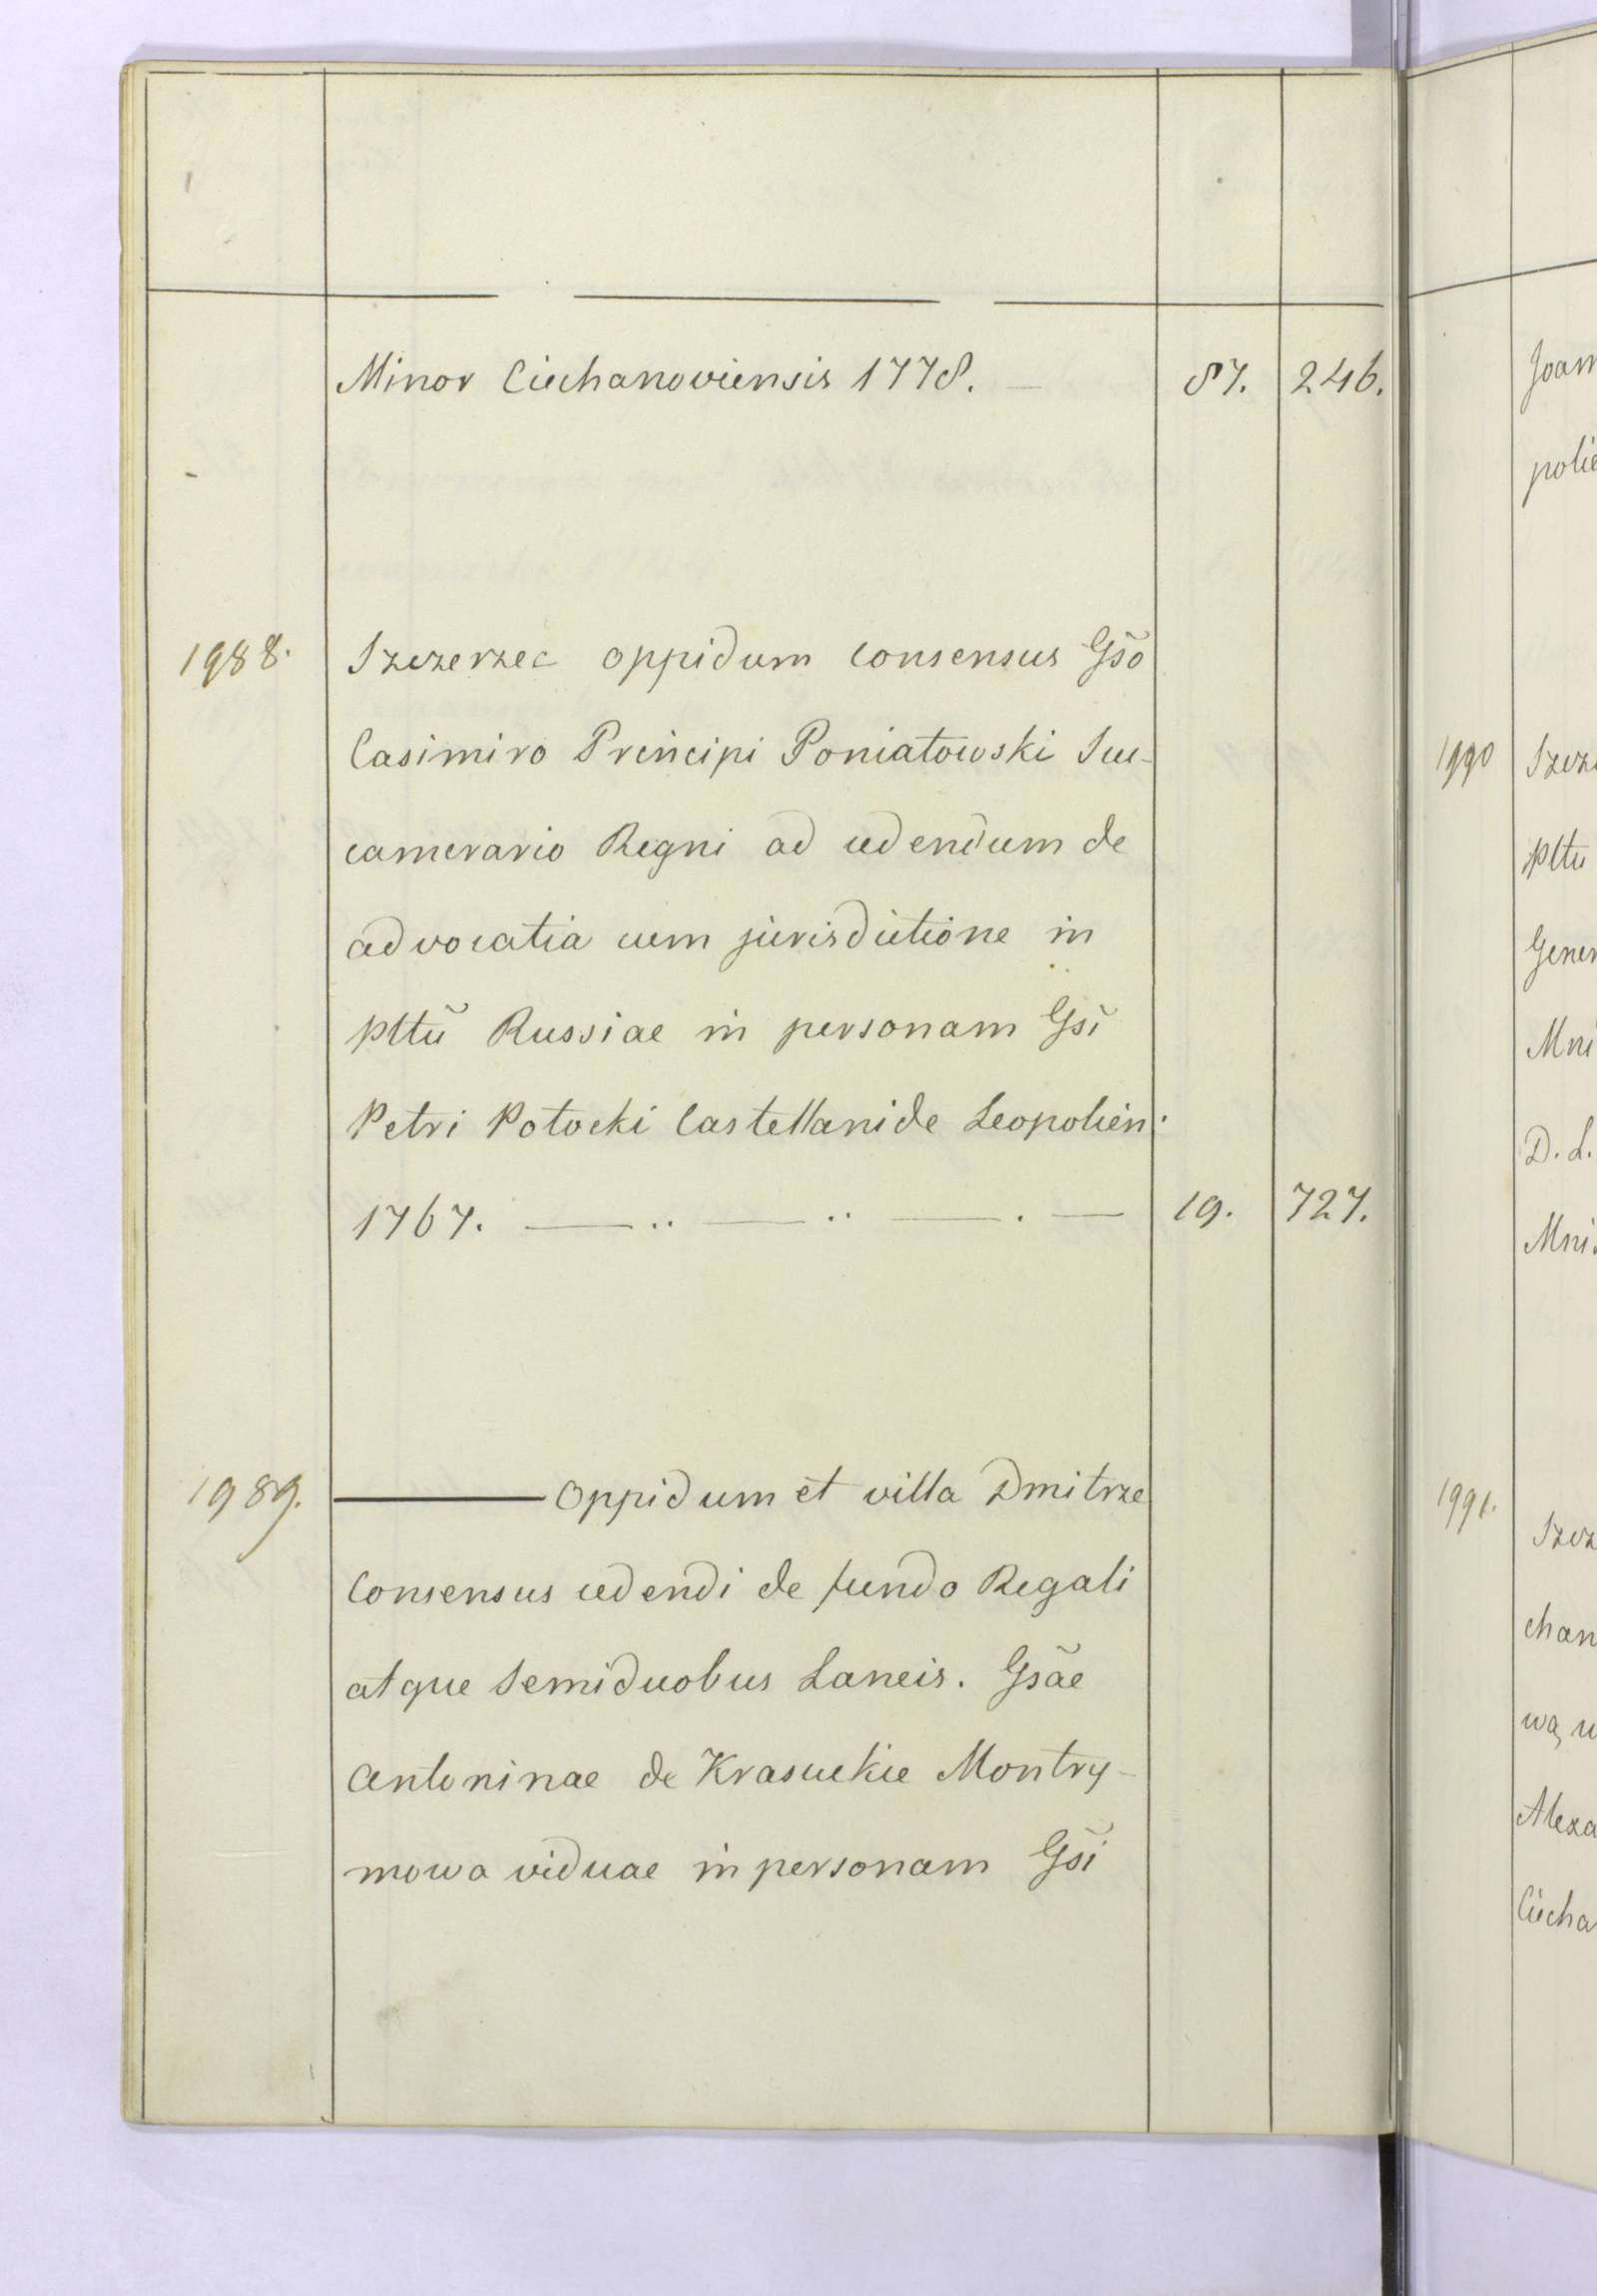 Minor Ciechanoviensis 1778. — 87. 246.
1988. Szczerzec oppidum consensus Gsõ
Casimiro Principi Poniatowski Suc-
camerario Regni ad cedendum de
advocatia cum jurisdictione in
Plttũ Russiae in personam Gsĩ
Petri Potocki Castellanide Leopolien.
1767. — .. — .. — . — 19. 727.
1989. ——— Oppidum et villa Dmitrze
consensus cedendi de fundo Regali
atque Semiduobus Laneis. Gsãe
Antoninae de Krasuckie Montry-
mowa viduae in personam Gsĩ
Joan
polie
1990 Szcz
Pltu
Gener
Mni
D. L.
Mni.
1991. Szcz
chan
wą, u
Alexa
Ciecha